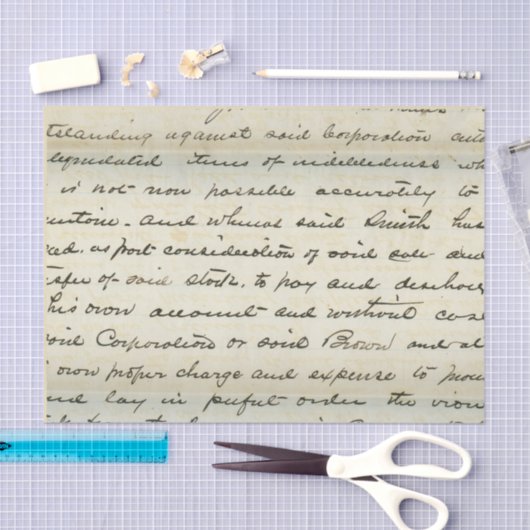 tstanding against said Corporation and
liquidated items of indebtedness wh
is not now possible accurately to
and whereas said Smith has
ed, as part consideration of said sale and
sfer of said stock, to pay and discharg
his own account and without cos
said Corporation or said Brown and at
own proper charge and expense to
nd lay in order the